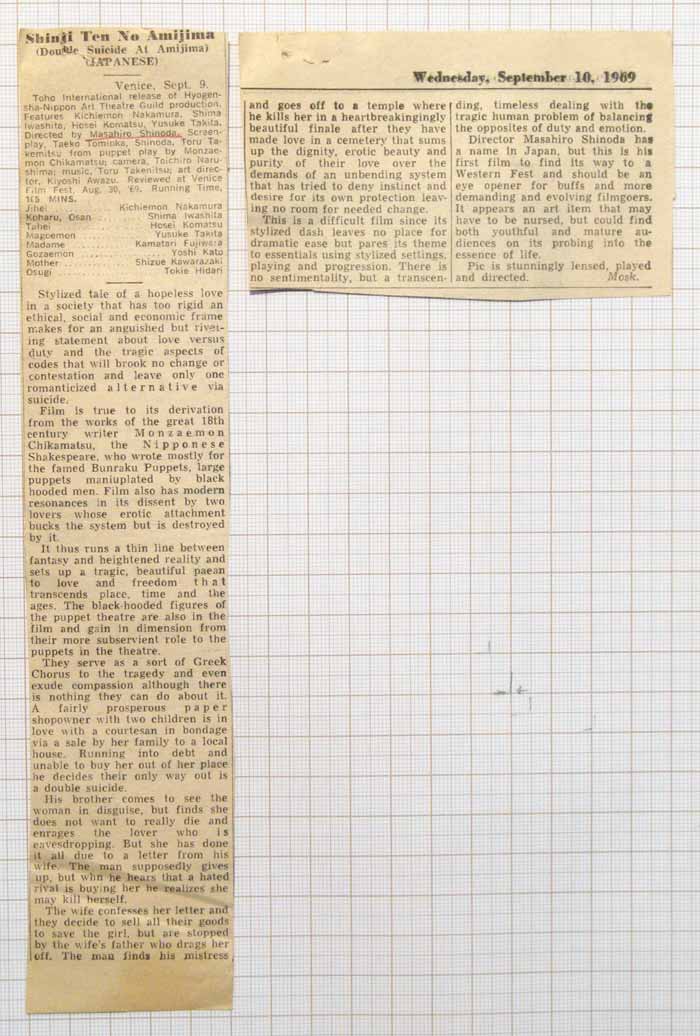 Shinji Ten No Amijima
(Double Suicide At Amijima)
(JAPANESE)
Venice, Sept. 9.
Toho International release of Hyogen-
sha-Nippon Art Theatre Guild production.
Features Kichiemon Nakamura, Shima
Iwashita, Hosei Komatsu, Yusuke Takita.
Directed by Masahiro Shinoda. Screen-
play, Taeko Tominka, Shinoda, Toru Ta-
kemitsu from puppet play by Monzae-
mon Chikamatsu; camera, Toichiro Naru-
shima; music, Toru Takenitsu; art direc-
tor, Kiyoshi Awazu. Reviewed at Venice
Film Fest, Aug. 30, '69. Running Time,
105 MINS.
Jihei Kichiemon Nakamura
Koharu, Osan Shima Iwashita
Tahei Hosei Komatsu
Magoemon Yusuke Takita
Madame Kamatari Fujiwara
Gozaemon Yoshi Kato
Mother Shizue Kawarazaki
Osugi Tokie Hidari
Stylized tale of a hopeless love
in a society that has too rigid an
ethical, social and economic frame
makes for an anguished but rivet-
ing statement about love versus
duty and the tragic aspects of
codes that will brook no change or
contestation and leave only one
romanticized alternative via
suicide.
Film is true to its derivation
from the works of the great 18th
century writer Monzaemon
Chikamatsu, the Nipponese
Shakespeare, who wrote mostly for
the famed Bunraku Puppets, large
puppets maniuplated by black
hooded men. Film also has modern
resonances in its dissent by two
lovers whose erotic attachment
bucks the system but is destroyed
by it.
It thus runs a thin line between
fantasy and heightened reality and
sets up a tragic, beautiful paean
to love and freedom that
transcends place, time and the
ages. The black-hooded figures of
the puppet theatre are also in the
film and gain in dimension from
their more subservient role to the
puppets in the theatre.
They serve as a sort of Greek
Chorus to the tragedy and even
exude compassion although there
is nothing they can do about it.
A fairly prosperous paper
shopowner with two children is in
love with a courtesan in bondage
via a sale by her family to a local
house. Running into debt and
unable to buy her out of her place
he decides their only way out is
a double suicide.
His brother comes to see the
woman in disguise, but finds she
does not want to really die and
enrages the lover who is
eavesdropping. But she has done
it all due to a letter from his
wife. The man supposedly gives
up, but whn he hears that a hated
rival is buying her he realizes she
may kill herself.
The wife confesses her letter and
they decide to sell all their goods
to save the girl, but are stopped
by the wife's father who drags her
off. The man finds his mistress
Wednesday, September 10, 1969
and goes off to a temple where
he kills her in a heartbreakingingly
beautiful finale after they have
made love in a cemetery that sums
up the dignity, erotic beauty and
purity of their love over the
demands of an unbending system
that has tried to deny instinct and
desire for its own protection leav-
ing no room for needed change.
This is a difficult film since its
stylized dash leaves no place for
dramatic ease but pares its theme
to essentials using stylized settings,
playing and progression. There is
no sentimentality, but a transcen-
ding, timeless dealing with the
tragic human problem of balancing
the opposites of duty and emotion.
Director Masahiro Shinoda has
a name in Japan, but this is his
first film to find its way to a
Western Fest and should be an
eye opener for buffs and more
demanding and evolving filmgoers.
It appears an art item that may
have to be nursed, but could find
both youthful and mature au-
diences on its probing into the
essence of life.
Pic is stunningly lensed, played
and directed. Mosk.